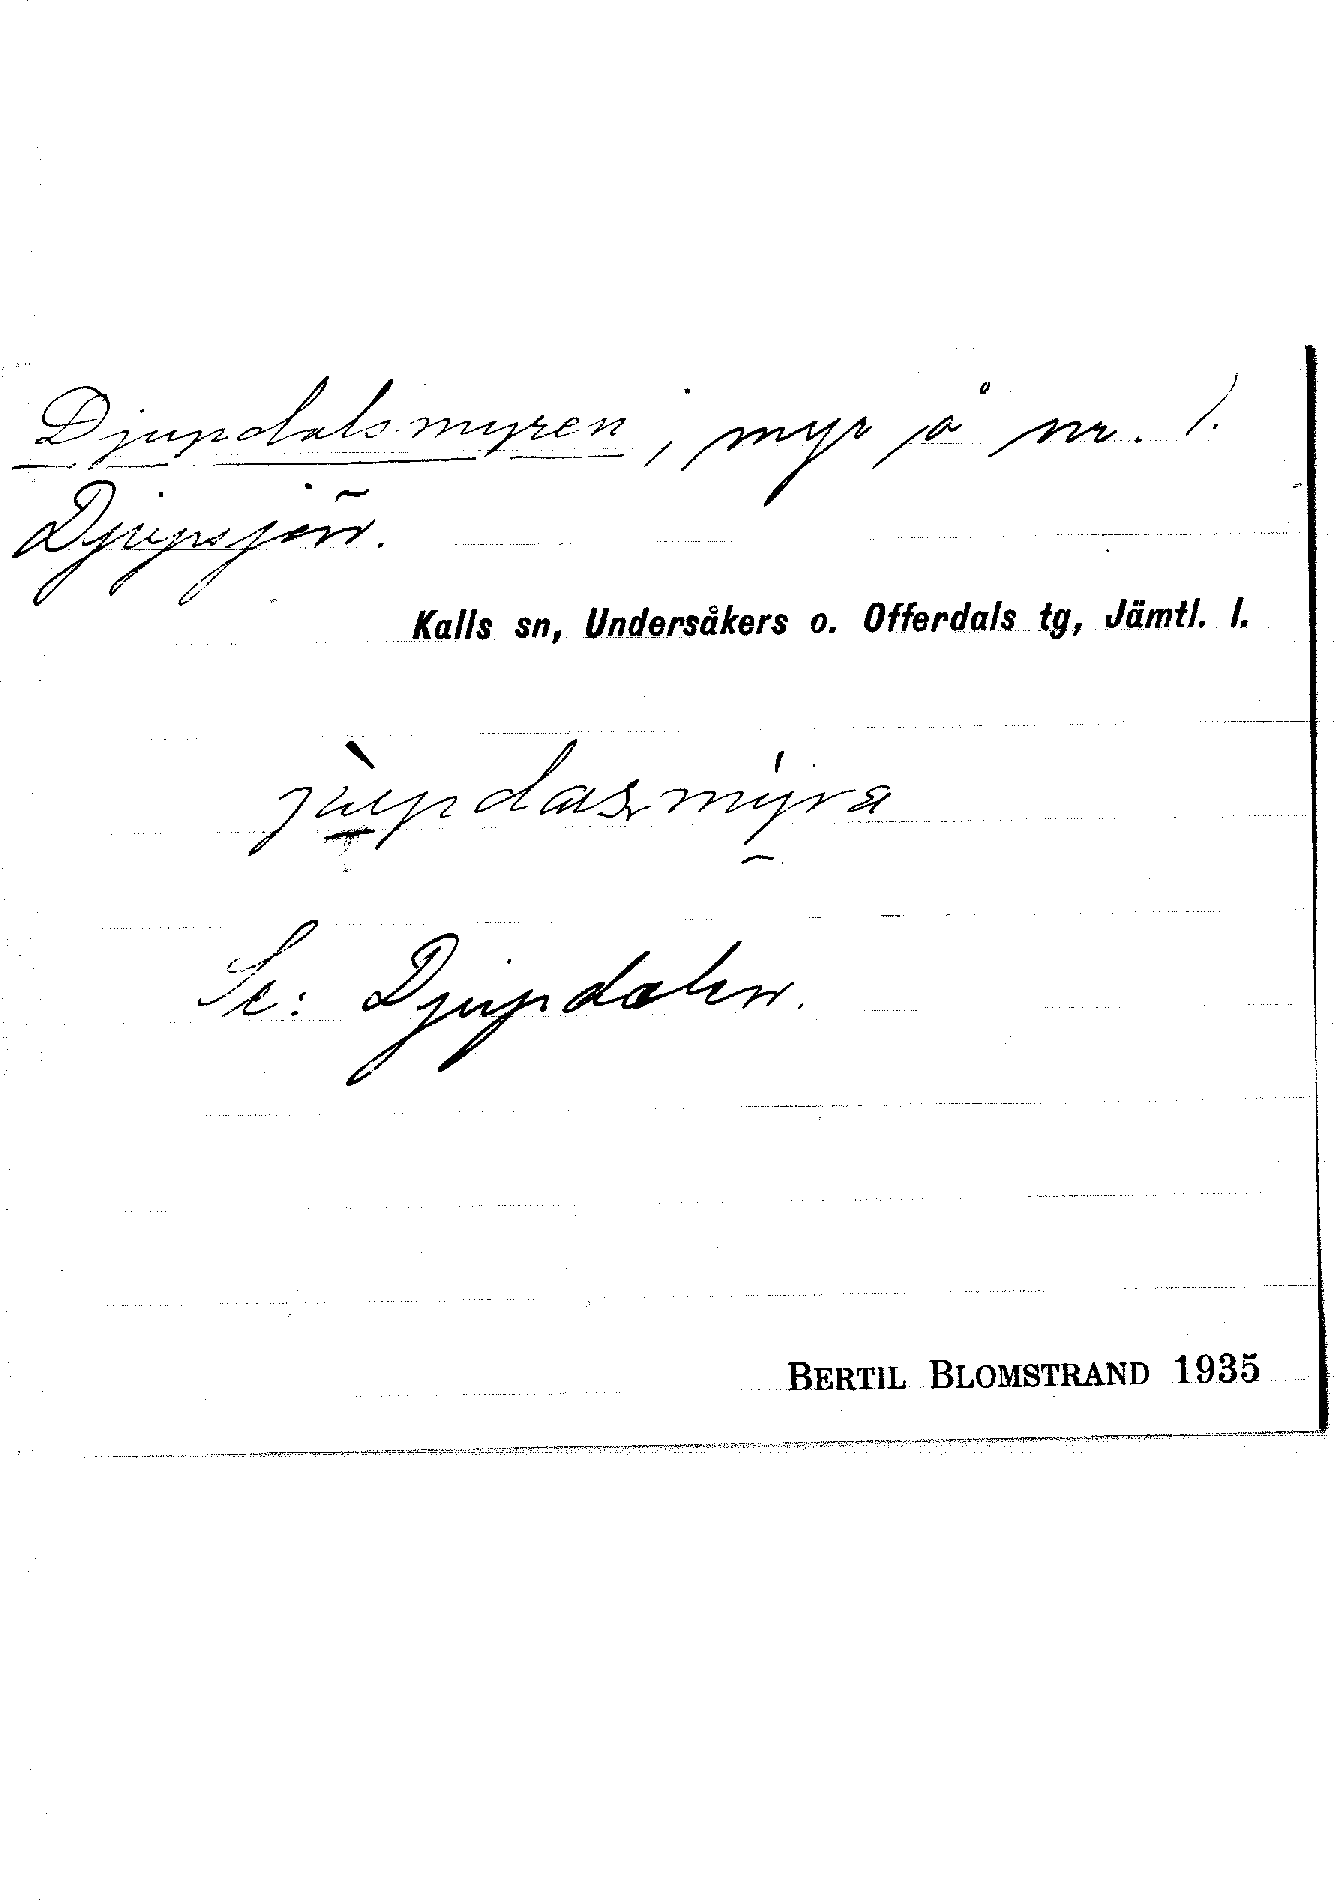 Djupdalsmyren, myr på nr. 1.
Djupsjön.
Kalls sn, Undersåkers o. Offerdals tg, Jämtl. l.
jùpdasmýra
Se: Djupdalen.
BERTIL BLOMSTRAND 1935